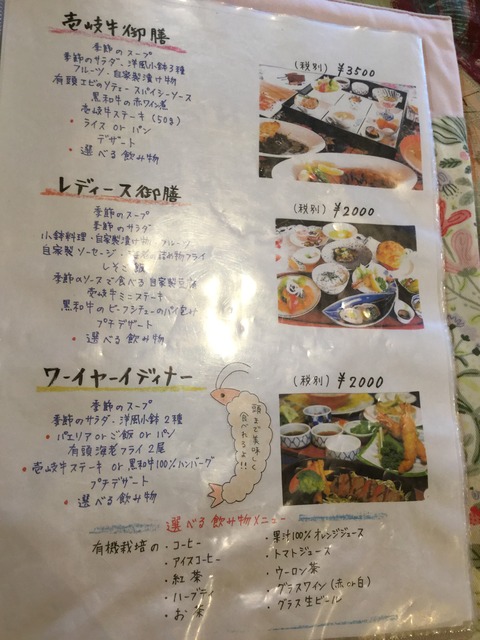 壱岐牛御膳
(税別) ¥3500
季節のスープ
季節のサラダ、洋風小鉢3種
フルーツ・自家製漬け物
有頭エビのソティースパイシーソース
黒和牛の赤ワイン煮
壱岐牛ステーキ (50g)
・ライス or パン
デザート
・選べる飲み物
レディース御膳
(税別) ¥2000
季節のスープ
季節のサラダ
小鉢料理・自家製漬け物
自家製ソーセージ・
の詰め物フライ
しそご飯
季節のソースで食べる自家製豆腐
壱岐牛ミニステーキ
黒和牛のビーフシチューのパイ包み
プチデザート
・選べる飲み物
ワーイヤーイディナー
(税別) ¥2000
季節のスープ
季節のサラダ、洋風小鉢2種
・パエリア or ご飯 or パン
有頭海老フライ2尾
・壱岐牛ステーキ or 黒和牛100%ハンバーグ
プチデザート
・選べる飲み物
頭まで美味しく
食べれるよ!!
選べる飲み物メニュー
有機栽培の・コーヒー
・アイスコーヒー
・紅茶
・ハーブティ
・お茶
・果汁100%オレンジジュース
・トマトジュース
・ウーロン茶
・グラスワイン (赤or白)
・グラス生ビール